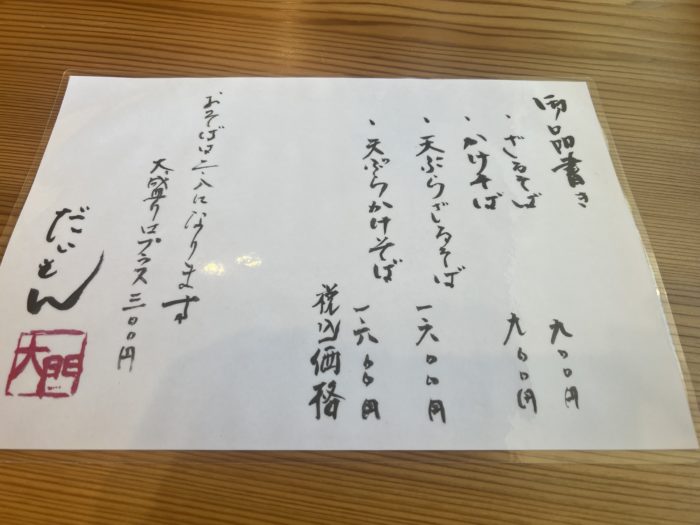 御品書き
・ざるそば 九〇〇円
・かけそば 九〇〇円
・天ぷらざるそば 一、六〇〇円
・天ぷらかけそば 一、六〇〇円
税込価格
おそばは二・八になります
大盛りはプラス三〇〇円
だいもん
大門